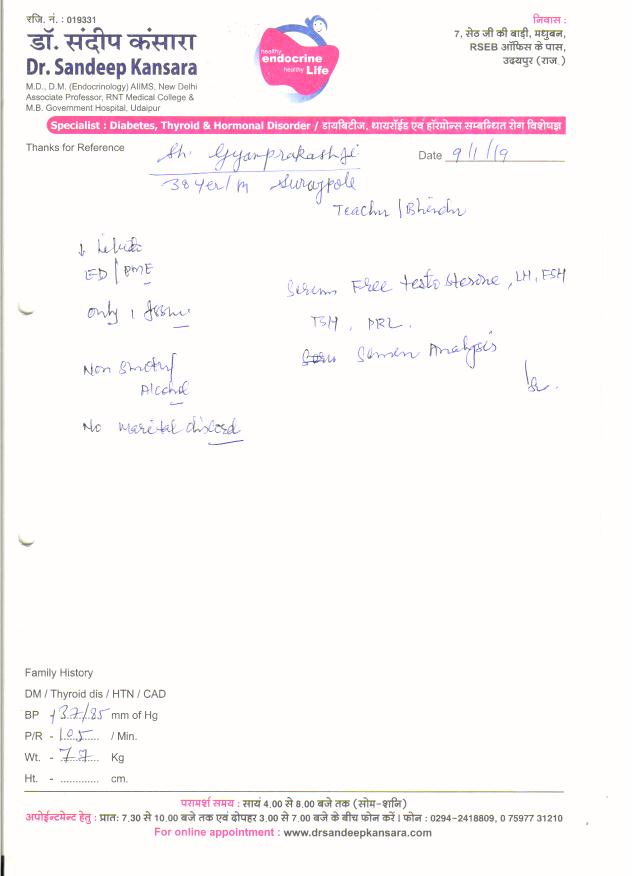 रजि. नं. : 019331
डॉ. संदीप कंसारा
Dr. Sandeep Kansara
M.D., D.M. (Endocrinology) AIIMS, New Delhi
Associate Professor, RNT Medical College &
M.B. Government Hospital, Udaipur
healthy
endocrine
healthy Life
निवास :
7, सेठ जी की बाड़ी, मधुबन,
RSEB ऑफिस के पास,
उदयपुर (राज.)
Specialist : Diabetes, Thyroid & Hormonal Disorder / डायबिटीज, थायरॉईड एवं हॉरमोन्स सम्बन्धित रोग विशेषज्ञ
Thanks for Reference
Sh. Gyanprakashji
Date 9/1/19
38 Yer/M Surajpole
Teacher / Bhinder
↓ Libido
ED / PME
Serum Free testosterone, LH, FSH
only 1 Issue
TSH, PRL.
Semen Analysis
Non Smoker/
Alcohol
No marital discord
Family History
DM / Thyroid dis / HTN / CAD
BP 137/85 mm of Hg
P/R - 105 / Min.
Wt. - 77 Kg
Ht. - ............ cm.
परामर्श समय : सायं 4.00 से 8.00 बजे तक (सोम-शनि)
अपोईन्टमेन्ट हेतु : प्रात: 7.30 से 10.00 बजे तक एवं दोपहर 3.00 से 7.00 बजे के बीच फोन करें । फोन : 0294-2418809, 0 75977 31210
For online appointment : www.drsandeepkansara.com